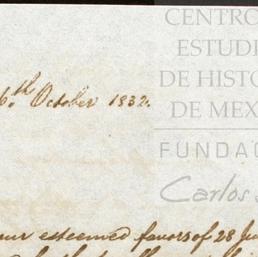 CENTRO
ESTUDI
DE HISTO
DE MEX
FUNDAC
Carlos
6.th October 1832.
esteemed favors of 28